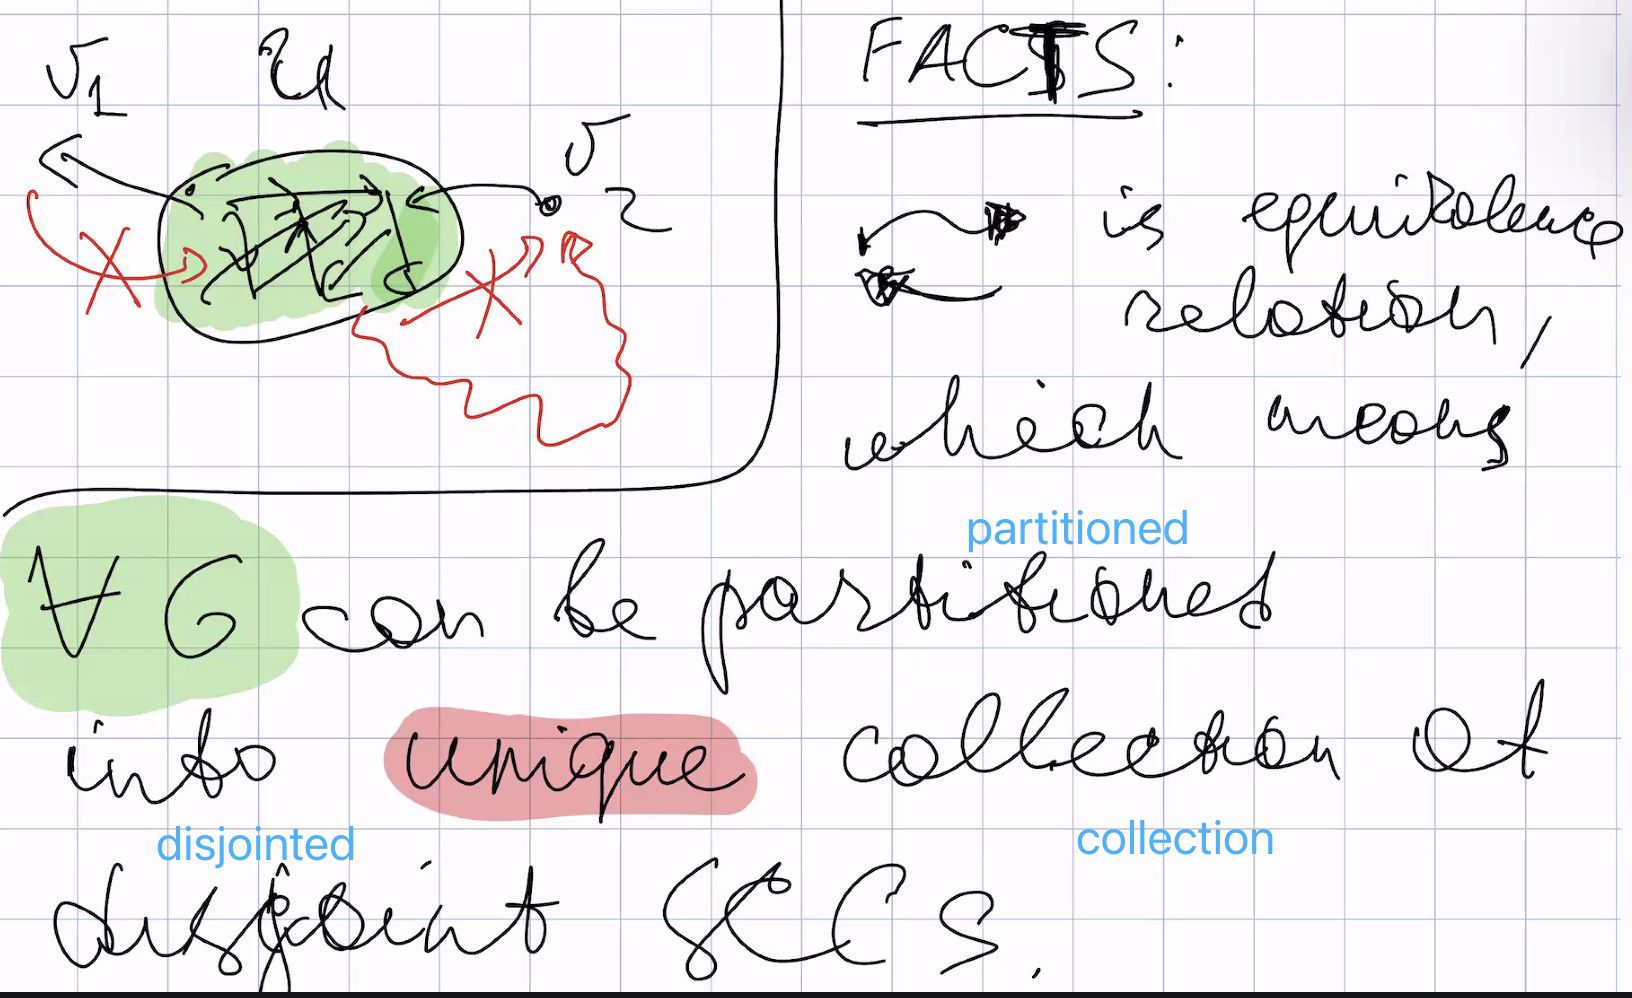 v1 U
v2
FACTS:
is equivalence
relation,
which means
partitioned
∀ G can be partitioned
into unique collection of
disjointed collection
disjoint SCCs.